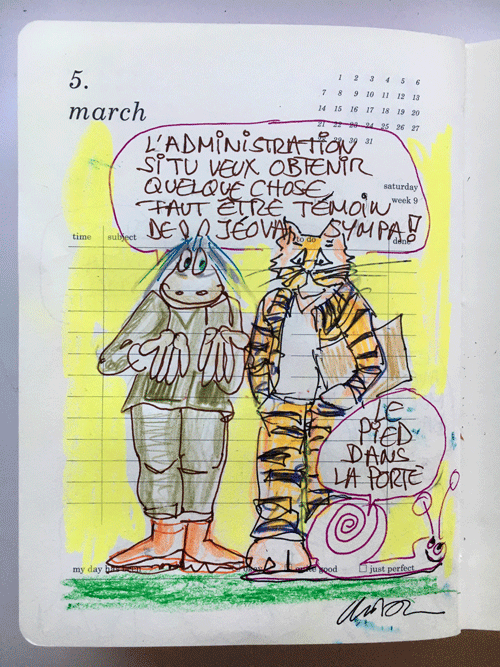 5.
march
1 2 3 4 5 6
7 8 9 10 11 12 13
14 15 16 17 18 19 20
21 22 23 24 25 26 27
28 29 30 31
saturday
week 9
L'ADMINISTRATION
SI TU VEUX OBTENIR
QUELQUE CHOSE,
FAUT ÊTRE TÉMOIN
DE JÉOVA SYMPA!
time subject to do done
LE
PIED
DANS
LA PORTE
my day has been okay quite good just perfect